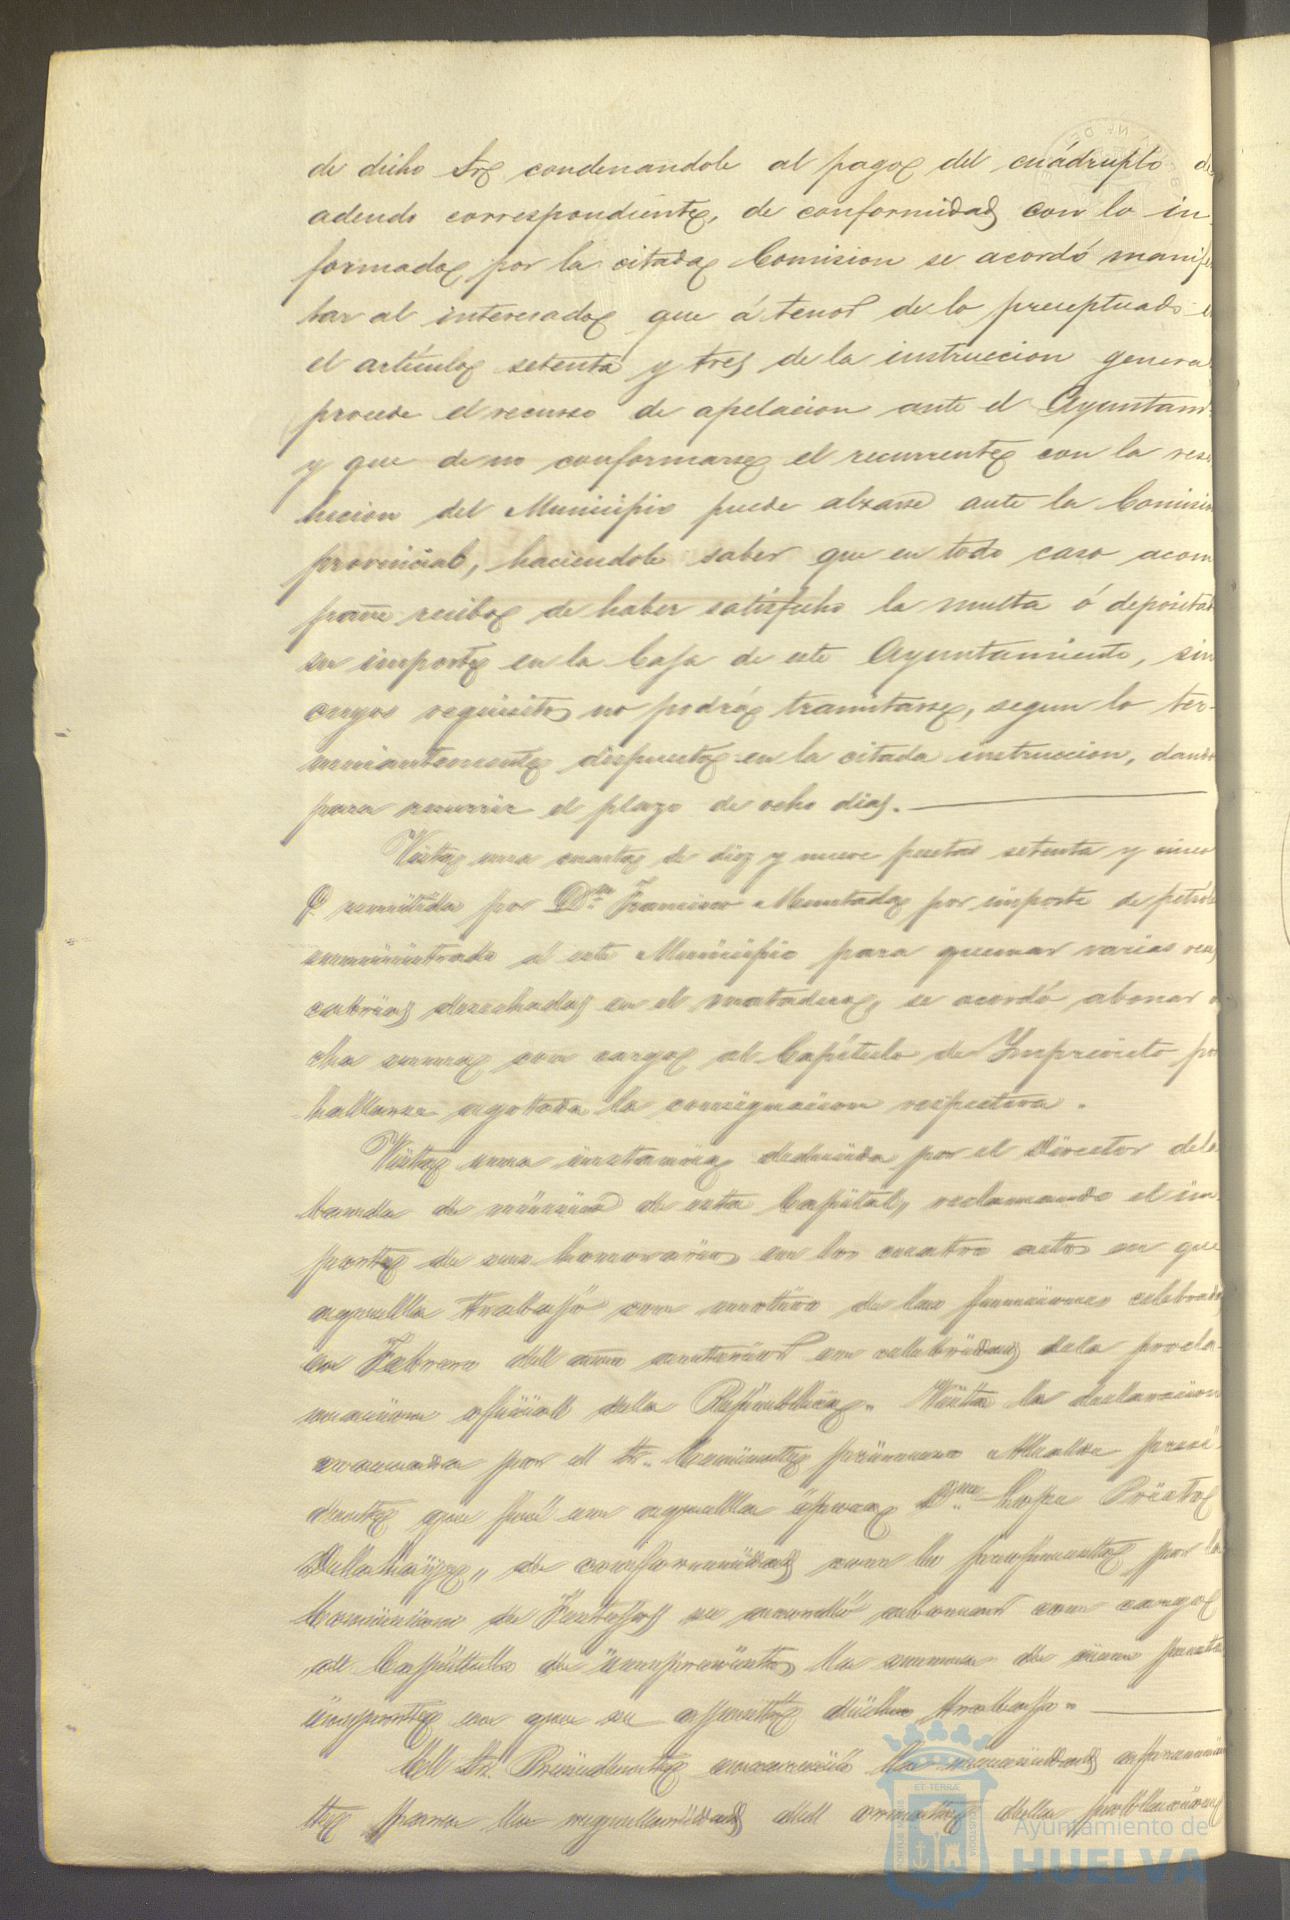 de dicho Sr condenandole al pago del cuádruplo de
adeudo correspondiente, de conformidad con lo in
formado por la citada Comision se acordó manifes
tar al interesado que á tenor de lo preceptuado e
el artículo setenta y tres de la instruccion genera
procede el recurso de apelacion ante el Ayuntam
y que de no conformarse el recurrente con la reso
lucion del Municipio puede alzarse ante la Comisio
provincial, haciendole saber que en todo caso acom
pañe recibo de haber satisfecho la multa ó depositado
su importe en la Caja de este Ayuntamiento, sin
cuyos requisitos no podrá tramitarse, segun lo ter-
minantemente dispuesto en la citada instruccion, dando
para recurrir el plazo de ocho dias.
Vista una cuenta de diez y nueve pesetas setenta y cinco
remitida por Dn Francisco Muntada por importe de petróleo
suministrado á este Municipio para quemar varias reses
cabrias desechadas en el matadero, se acordó abonar
cha suma con cargo al Capítulo de Imprevisto por
hallarse agotada la consignacion respectiva.
Vista una instancia deducida por el Director de la
banda de música de esta Capital, reclamando el im
porte de sus honorarios en los cuatro actos en que
aquella trabajó con motivo de las funciones celebradas
en Febrero del año anterior en celebridad de la procla
macion oficial de la República. Vista la declaracion
evacuada por el Sr. Teniente primero Alcalde presi
dente que fué en aquella época Dn Lope Prieto
de conformidad con lo propuesto por la
Comision de Festejos se acordó abonar con cargo
al Capítulo de imprevisto la suma de cien pesetas
importe en que se aprecia dicho trabajo.
El Sr. Presidente encareció la necesidad apremian
te para la regularidad del ornato de la poblacion
Ayuntamiento de
HUELVA